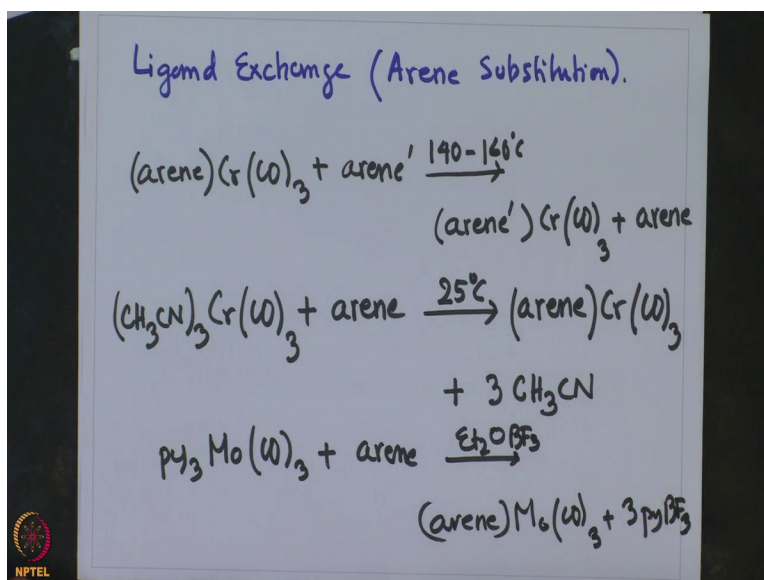 Ligand Exchange (Arene Substitution).
(arene)Cr(CO)₃ + arene' 140-160°C
(arene')Cr(CO)₃ + arene
(CH₃CN)₃Cr(CO)₃ + arene 25°C (arene)Cr(CO)₃
+ 3 CH₃CN
py₃Mo(CO)₃ + arene Et₂OBF₃
(arene)Mo(CO)₃ + 3pyBF₃
NPTEL